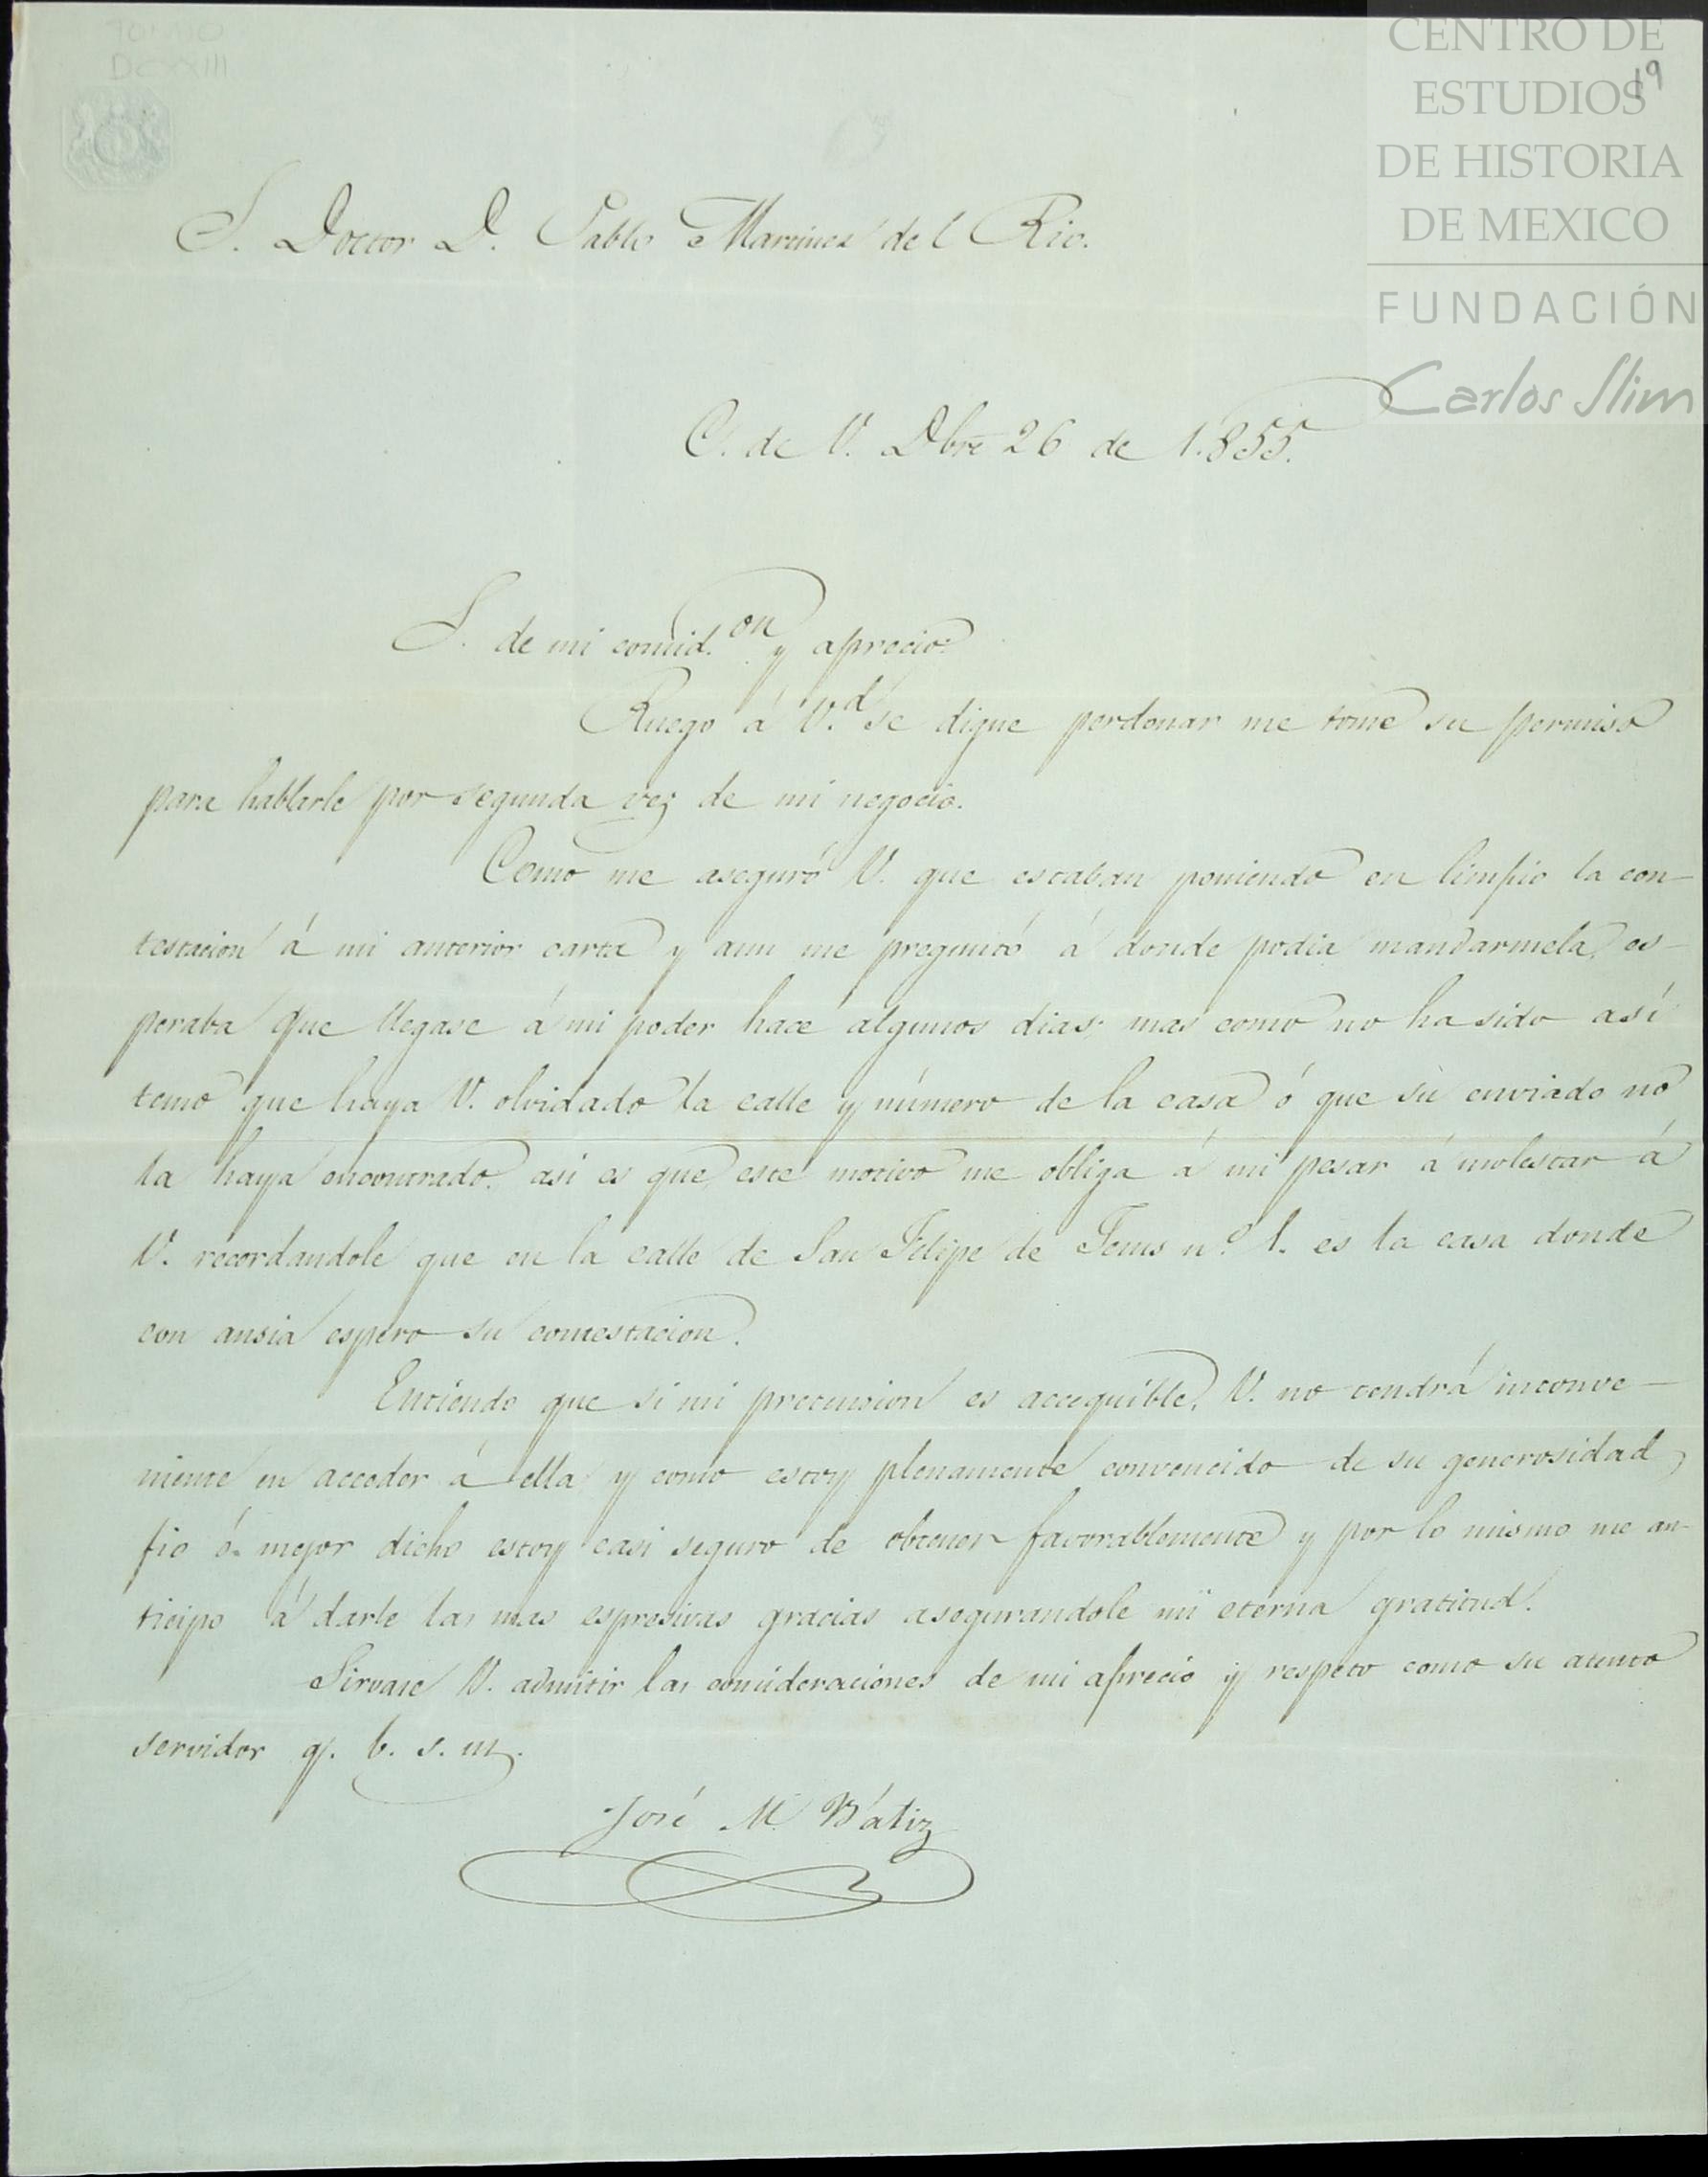 CENTRO DE
ESTUDIOS
DE HISTORIA
DE MEXICO
FUNDACIÓN
Carlos Slim
19
DCXXIII
S. Doctor D. Pablo Martinez del Rio.
C. de V. Dbre 26 de 1.855.
S. de mi consid.on y aprecio:
Ruego á V.d se digne perdonar me tome su permiso
para hablarle por segunda vez de mi negocio.
Como me aseguró V. que estaban poniendo en limpio la con-
testacion á mi anterior carta y aun me preguntó á donde podia mandarmela, es-
peraba que llegase á mi poder hace algunos dias; mas como no ha sido así
temo que haya V. olvidado la calle y número de la casa ó que su enviado no
la haya encontrado, asi es que este motivo me obliga á mi pesar á molestar á
V. recordandole que en la calle de San Felipe de Jesus n.º 1. es la casa donde
con ansia espero su contestacion.
Entiendo que si mi pretension es accequible, V. no tendrá inconve-
niente en acceder á ella y como estoy plenamente convencido de su generosidad,
fio ó mejor dicho estoy casi seguro de obtener favorablemente y por lo mismo me an-
ticipo á darle las mas espresivas gracias asegurandole mi eterna gratitud.
Sirvase V. admitir las consideraciones de mi aprecio y respeto como su atento
servidor q. b. s. m.
José M. Bátiz